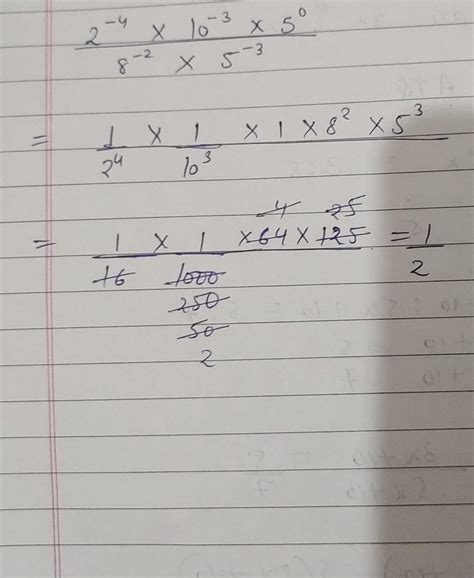 2⁻⁴ × 10⁻³ × 5⁰
8⁻² × 5⁻³
= 1/2⁴ × 1/10³ × 1 × 8² × 5³
4 25
= 1/16 × 1/1000 × 64 × 125 = 1/2
250
50
2